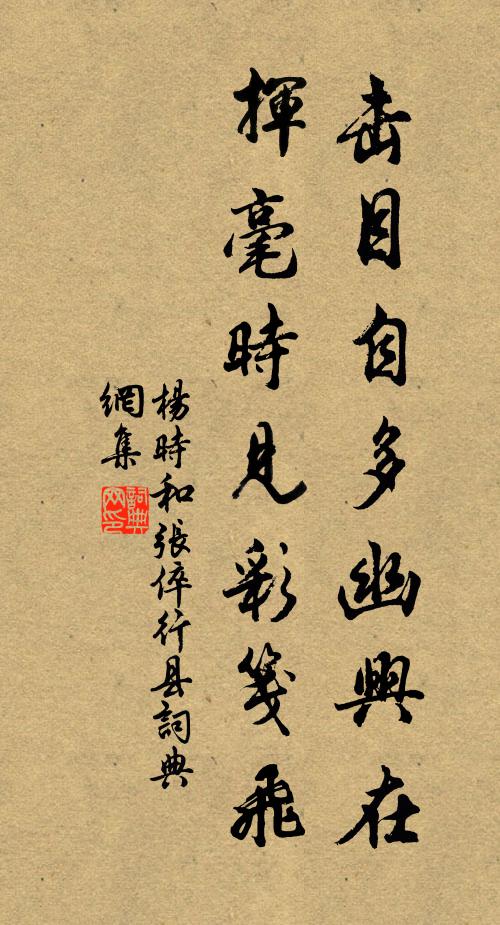 击目自多幽興在
揮毫時見彩箋飛
楊時和張倅行县詞典
網集
詞典
网印